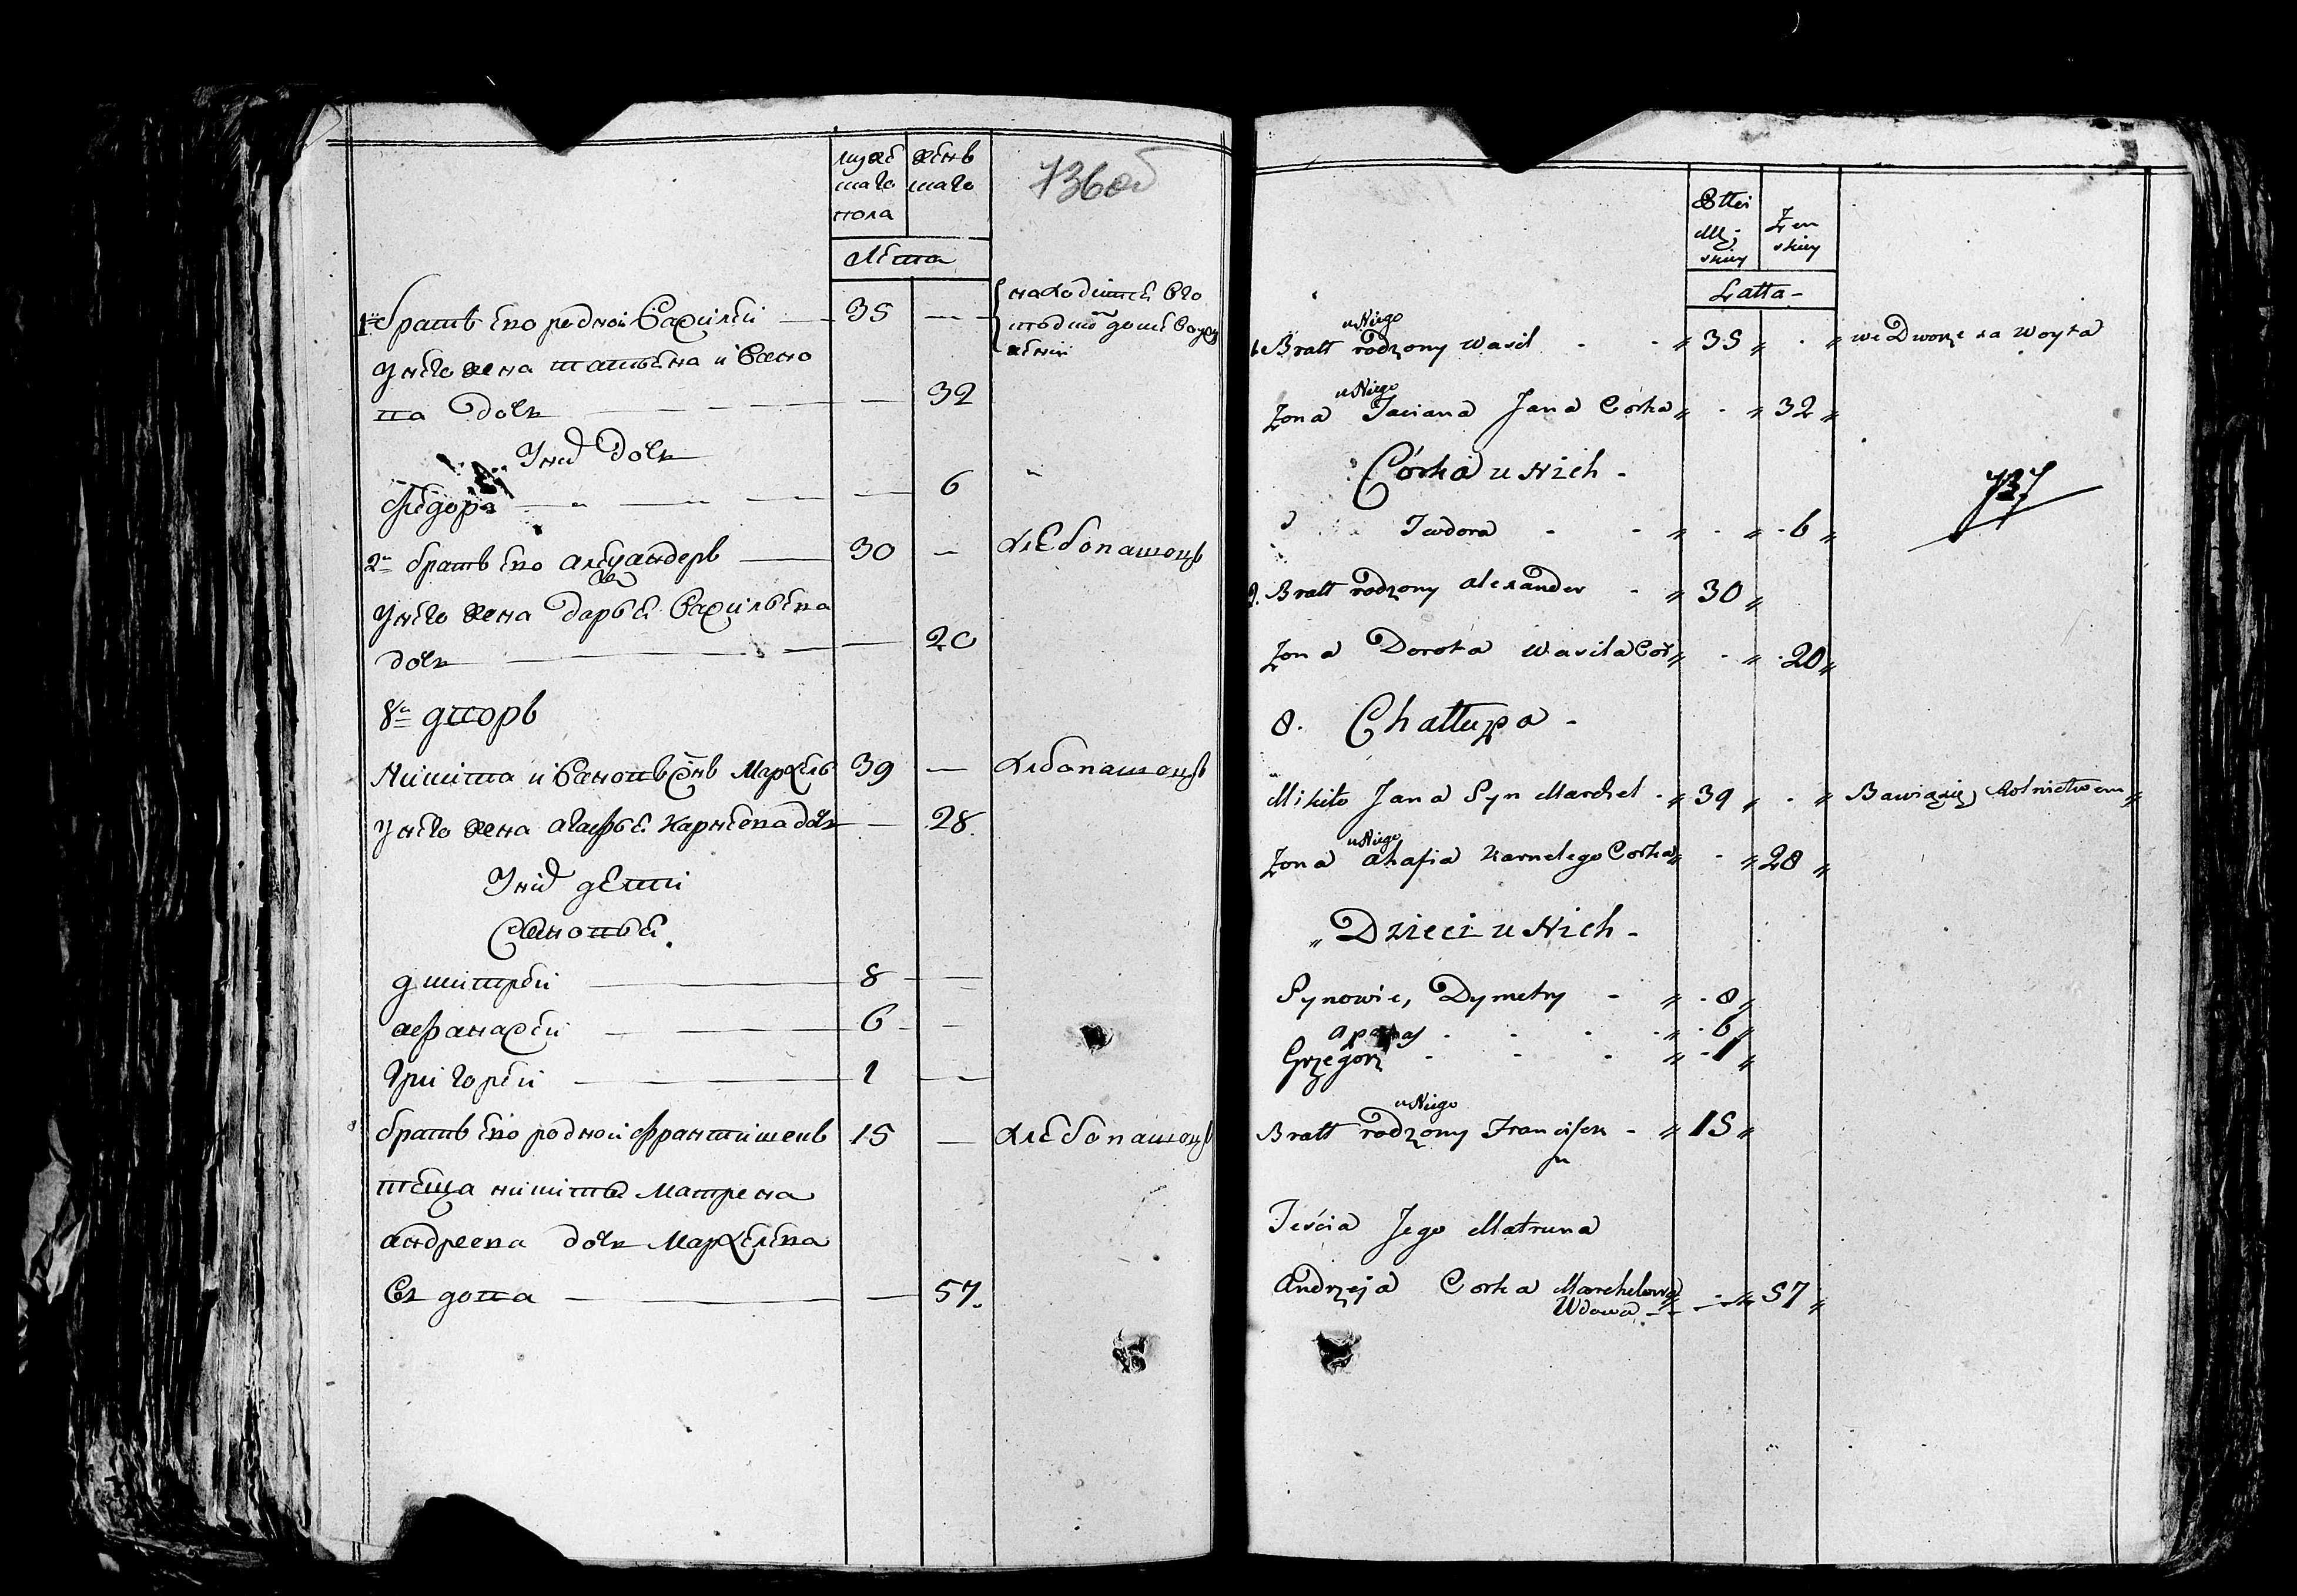 муже
скаго
пола
женъ
скаго
736об
Лета
1й братъ ево родной Василей — 35 — —
находитса во
дворе
у него жена татьяна ивано
ва доч — — 32
У них доч
Федора — — 6
2й братъ ево александеръ — 30 — хлебопашецъ
у него жена дарья васильева
доч — — 20
8й дворъ
Никита ивановъ сынъ Мархель 39 — хлбопашецъ
у него жена агафья карнеева доч — 28
У них дети
Сыновья
дмитрей — 8 —
афанасей — 6 —
григорей — 1 —
братъ ево родной франтишекъ 15 — хлебопашецъ
теща никиты матрена
андреева доч Мархелева
вдова — — 57.
Płci
Mę;
skiey
Żen
skiey
Latta -
u Niego
1. Bratt rodzony Wasil - - 35 - we Dworze za Woyta
u Niego
Żona Taciana Jana Corka - 32
Córka u Nich -
737
Teodora - - - 6
2. Bratt rodzony Alexander - 30
Żona Dorota Wasila Cor - 20
8. Chattupa -
Mikito Jana Syn Marchel - 39 - Bawiąsię Rolnictwem
u Niego
Żona Ahafia Karnelego Corka - 28
Dzieci u Nich -
Synowie, Dymetry - 8
- - - 6
Grzegorz - - - 1
u Niego
Bratt rodzony Franciszek - 15
Teścia Jego Matruna
Andrzeja Corka Marchelowa
Wdowa - - 57